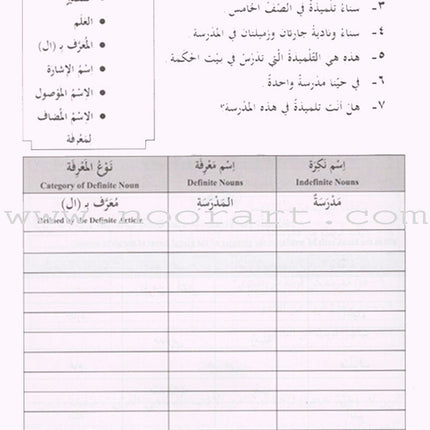 ٣- سناءُ تلميذةٌ في الصّفِّ الخامس
٤- سناءُ وناديةُ جارتان وزميلتان في المدرسة
٥- هذه هي التّلميذةُ الّتي تدرُسُ في بيْت الحكمة.
٦- في حيِّنا مدرسةٌ واحدةٌ.
٧- هلْ أنت تلميذةٌ في هذه المدْرسة؟
• العَلَم
• المُعَرَّف بـ (ال)
• اِسْمُ الإشارة
• الاسْمُ المَوْصول
• الاسْمُ المُضاف
لمَعْرِفة
اِسْم نَكِرَة
Indefinite Nouns
اِسْم مَعْرِفَة
Definite Nouns
نَوْعُ المَعْرِفَة
Category of Definite Noun
مَدْرَسَةٌ
المَدْرَسَة
مُعَرَّف بـ (ال)
Defined by the Definite Article
www.noorart.com